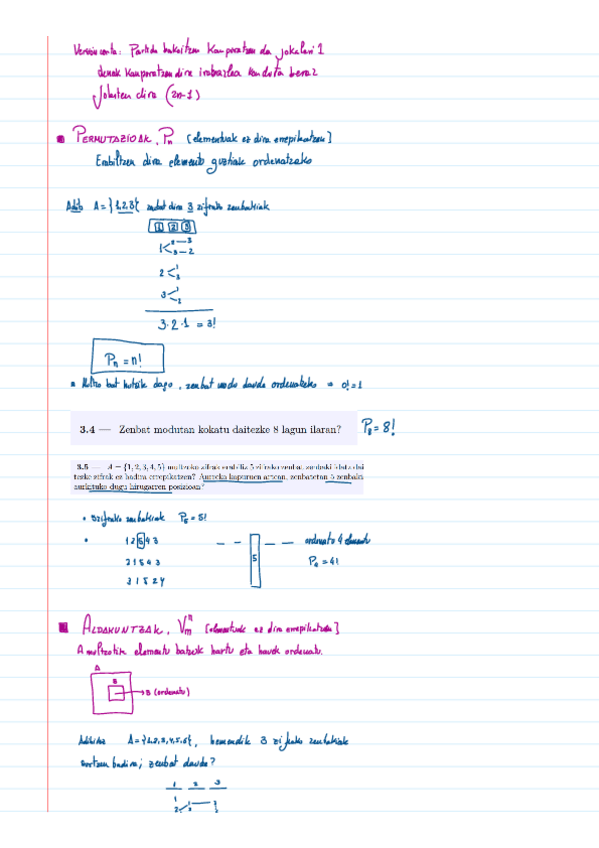 Versio conta: Partida bakoitzean kanporatzen da jokalari 1
denak kanporatzen dira irabazlea kenduta beraz
Jokatzen dira (2n-1)
PERMUTAZIOAK, Pn [elementuak ez dira errepikatzen]
Erabiltzen dira elementu guztiak ordenatzeko
Adib. A = {1,2,3} zenbat dira 3 zifrako zenbakiak
1 2 3
1 < 2 — 3
3 — 2
2 < 1
3
3 < 1
2
3·2·1 = 3!
Pn = n!
Multzo bat hutsik dago, zenbat modu daude ordenatzeko = 0! = 1
3.4 — Zenbat modutan kokatu daitezke 8 lagun ilaran? P8 = 8!
3.5 — A = {1, 2, 3, 4, 5} multzoko zifrak erabiliz 5 zifrako zenbat zenbaki idatz dai
tezke zifrak ez badira errepikatzen? Aurreko kasuaren artean, zenbatetan 5 zenbakia
aurkituko dugu hirugarren posizioan?
5 zifrako zenbakiak P5 = 5!
1 2 5 4 3 — — 5 — — ordenatu 4 elementu
2 1 5 4 3 P4 = 4!
3 1 5 2 4
ALDAKUNTZAK, V [elementuak ez dira errepikatzen]
A multzotik elementu batzuk hartu eta horiek ordenatu.
A
B
B (ordenatu)
Adibidea A = {1,2,3,4,5,6}, hemendik 3 zifrako zenbakiak
sortzen badira; zenbat daude?
1 2 3
1